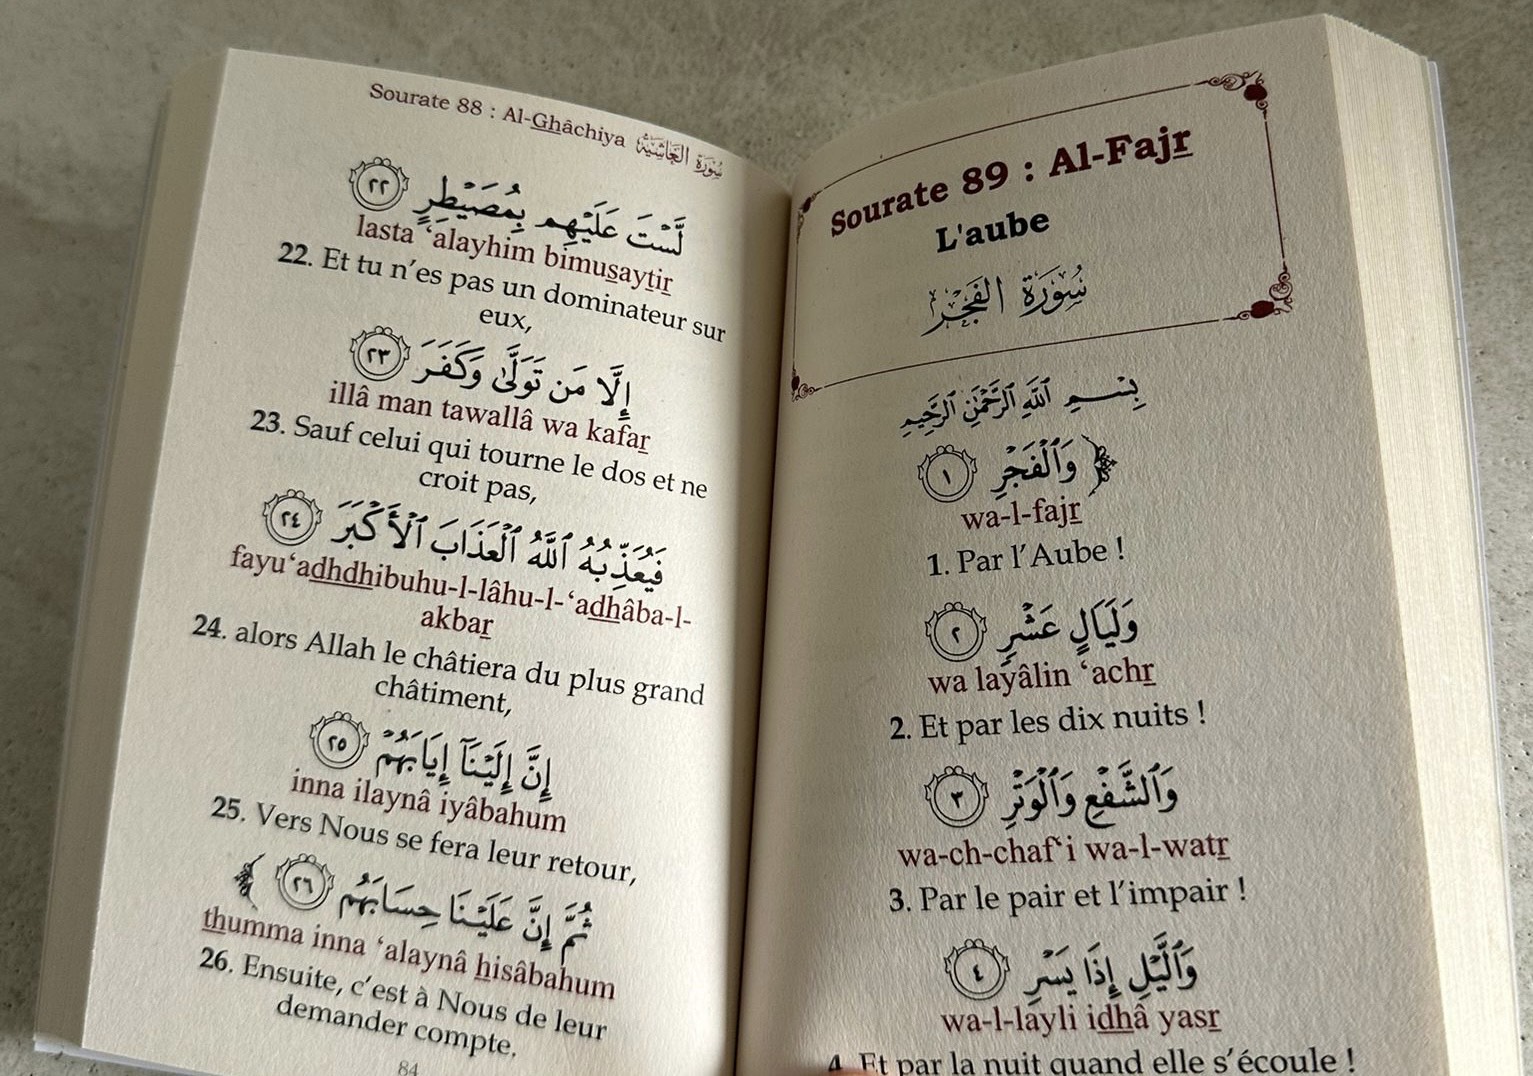 Sourate 88 : Al-Ghâchiya سُورَةُ الغَاشِيَةِ
لَّسْتَ عَلَيْهِم بِمُصَيْطِرٍ ٢٢
lasta ‘alayhim bimusaytir
22. Et tu n’es pas un dominateur sur
eux,
إِلَّا مَن تَوَلَّىٰ وَكَفَرَ ٢٣
illâ man tawallâ wa kafar
23. Sauf celui qui tourne le dos et ne
croit pas,
فَيُعَذِّبُهُ ٱللَّهُ ٱلْعَذَابَ ٱلْأَكْبَرَ ٢٤
fayu‘adhdhibuhu-l-lâhu-l-‘adhâba-l-
akbar
24. alors Allah le châtiera du plus grand
châtiment,
إِنَّ إِلَيْنَآ إِيَابَهُمْ ٢٥
inna ilaynâ iyâbahum
25. Vers Nous se fera leur retour,
ثُمَّ إِنَّ عَلَيْنَا حِسَابَهُم ٢٦
thumma inna ‘alaynâ hisâbahum
26. Ensuite, c’est à Nous de leur
demander compte.
84
Sourate 89 : Al-Fajr
L'aube
سُورَةُ الفَجْرِ
بِسْمِ ٱللَّهِ ٱلرَّحْمَٰنِ ٱلرَّحِيمِ
وَٱلْفَجْرِ ١
wa-l-fajr
1. Par l’Aube !
وَلَيَالٍ عَشْرٍ ٢
wa layâlin ‘achr
2. Et par les dix nuits !
وَٱلشَّفْعِ وَٱلْوَتْرِ ٣
wa-ch-chaf‘i wa-l-watr
3. Par le pair et l’impair !
وَٱلَّيْلِ إِذَا يَسْرِ ٤
wa-l-layli idhâ yasr
4. Et par la nuit quand elle s’écoule !